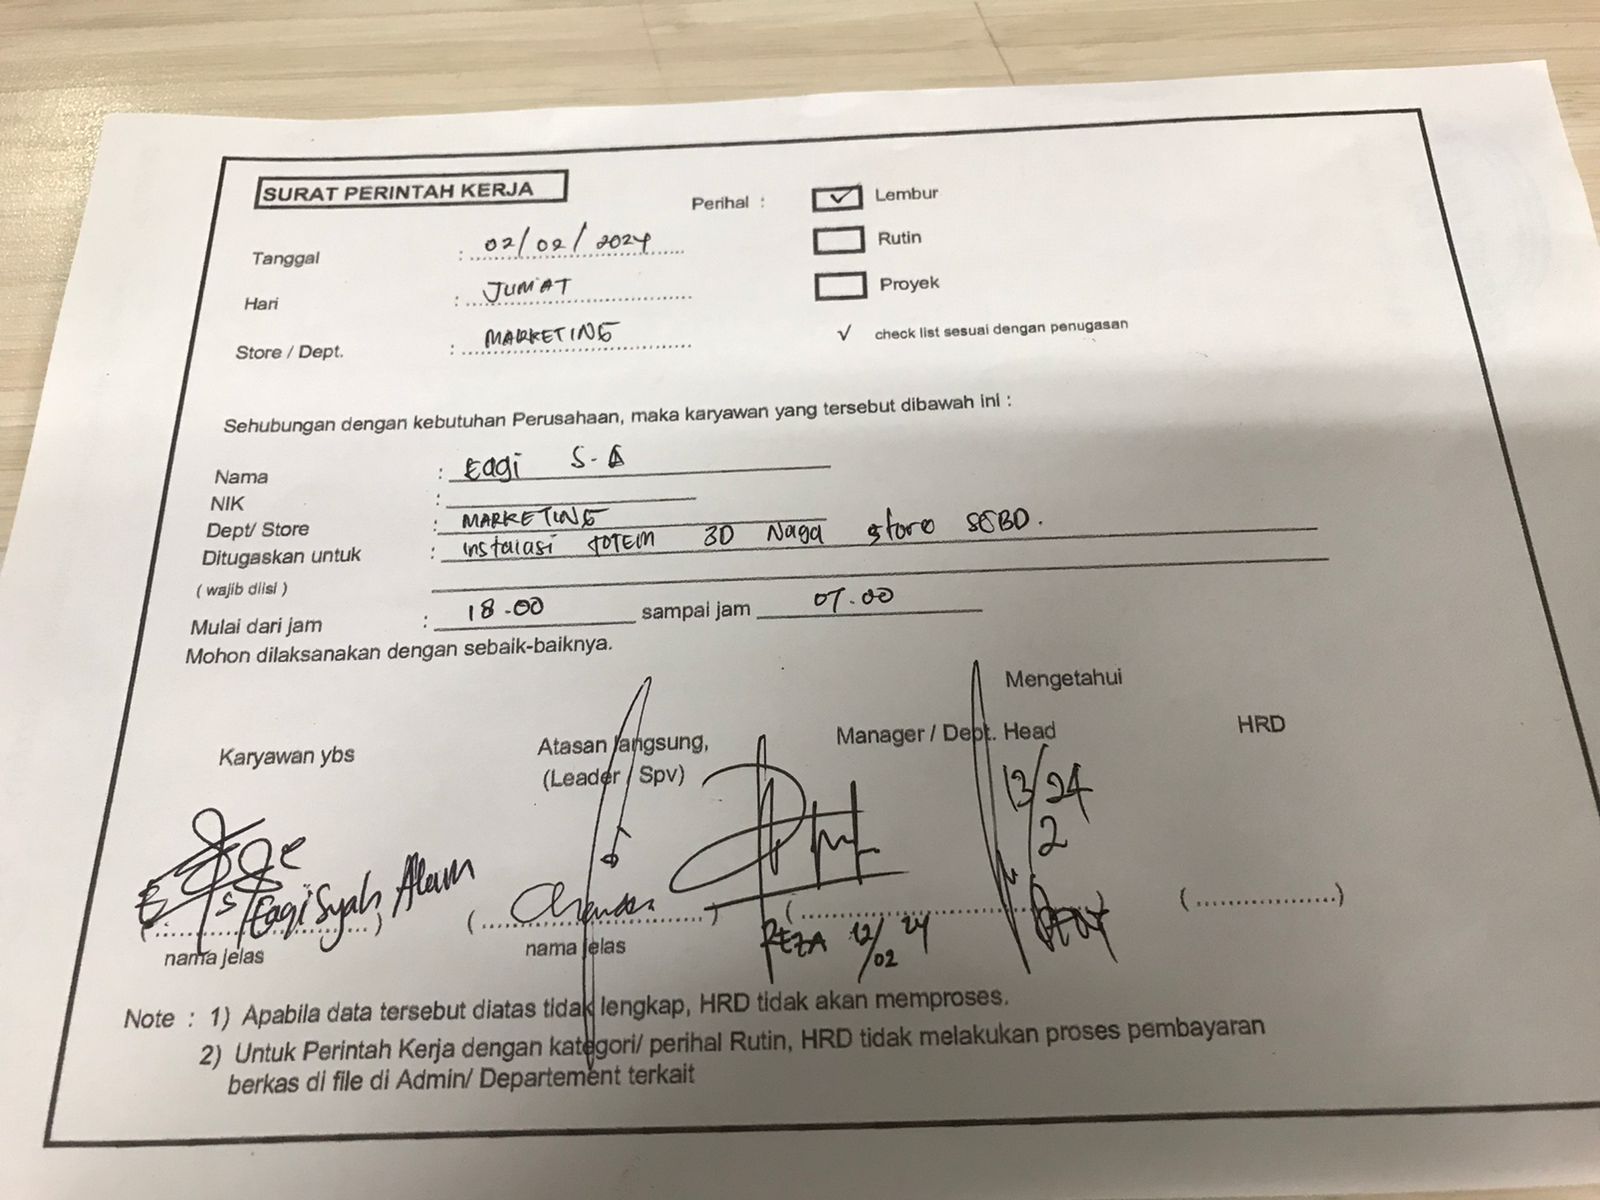 SURAT PERINTAH KERJA
Perihal : ✓ Lembur
Rutin
Proyek
√ check list sesuai dengan penugasan
Tanggal : 02/02/2024
Hari : JUM'AT
Store / Dept. : MARKETING
Sehubungan dengan kebutuhan Perusahaan, maka karyawan yang tersebut dibawah ini :
Nama : Eagi S.A
NIK :
Dept/ Store : MARKETING
Ditugaskan untuk : instalasi TOTEM 3D Naga store
( wajib diisi )
Mulai dari jam : 18.00 sampai jam 07.00
Mohon dilaksanakan dengan sebaik-baiknya.
Mengetahui
Karyawan ybs
Atasan langsung,
(Leader / Spv)
Manager / Dept. Head
HRD
13/24
2
Eagi Syah Alam
(....................) (....................) (....................) (....................)
Chandra
nama jelas
nama jelas
REZA 12/02 24
Note : 1) Apabila data tersebut diatas tidak lengkap, HRD tidak akan memproses.
2) Untuk Perintah Kerja dengan kategori/ perihal Rutin, HRD tidak melakukan proses pembayaran
berkas di file di Admin/ Departement terkait